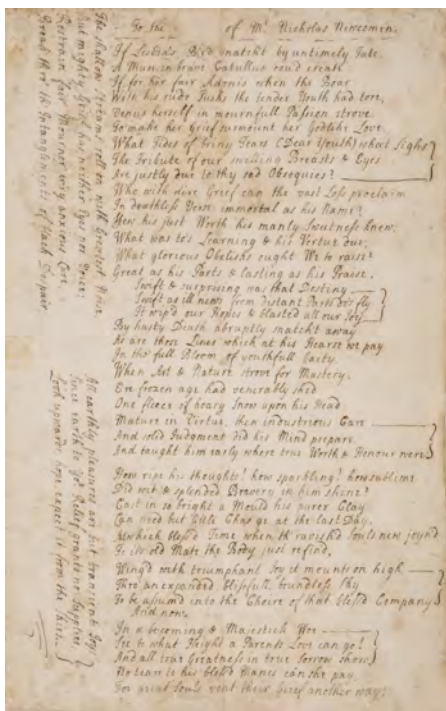 To the of Mr. Nicholas Newcomen.
If Lesbia's Bird snatcht by untimely Fate
A Mun in brave Catullus cou'd create
If for her fair Adonis when the Boar
With his rude Tusks the tender Youth had tore,
Venus herself in mournfull Passion strove
To make her Grief surmount her Godlike Love
What Tides of briny Tears (Dear Youth) what Sighs
The Tribute of our swelling Breasts & Eyes
Are justly due to thy sad Obsequies?
Who with dire Grief can the vast Loss proclaim
In deathless Verse immortal as his Name?
How his just Worth his manly Sweetness knew.
What was to's Learning & his Vertue due,
What glorious Obelisks ought We to raise?
Great as his Parts & lasting as his Praise.
Swift & surprizing was that Destiny
Swift as ill news from distant Parts do's fly
It wip'd our Hopes & blasted all our Joy
By hasty Death abruptly snatcht away
As are those Lines which at his Hearse we pay
In the full Bloom of youthfull
When Art & Nature strove for Mastery.
Ere frozen age had venerably shed
One fleece of hoary Snow upon his Head
Mature in Virtue, then industrious Care
And solid Judgment did his Mind prepare
And taught him early where true Worth & Honour were
How ripe his thoughts! how sparkling! how sublime
Did wit & splended Bravery in him shine?
Cast in so bright a Mould his purer Clay
Can need but little Change at the last Day.
At which bless'd Time when th' ravish'd Souls new joyn'd
To its old Mate the Body just refind,
Wing'd with triumphant Joy it mounts on high
Thro' an expanded, blissfull, boundless Sky
To be assum'd into the Choire of that bless'd Company
And now.
In a becoming & Majestick Woe
See to what Height a Parents Love can go!
And all true Greatness in true Sorrow show
No tear to his bless'd Manes can she pay
For great Souls vent their Grief another way;
The shallow Streams roll on with Greatest Noise
But mighty Grief has neither Eyes nor Voice:
Restrain fair Mourner your anxious Care,
Bread thro' th' Intanglements of black Despair
All earthly pleasures are but transient Joys
Since earth to yor Relief grants no Supplies,
Look upwards, hope, expect it from the Skies.